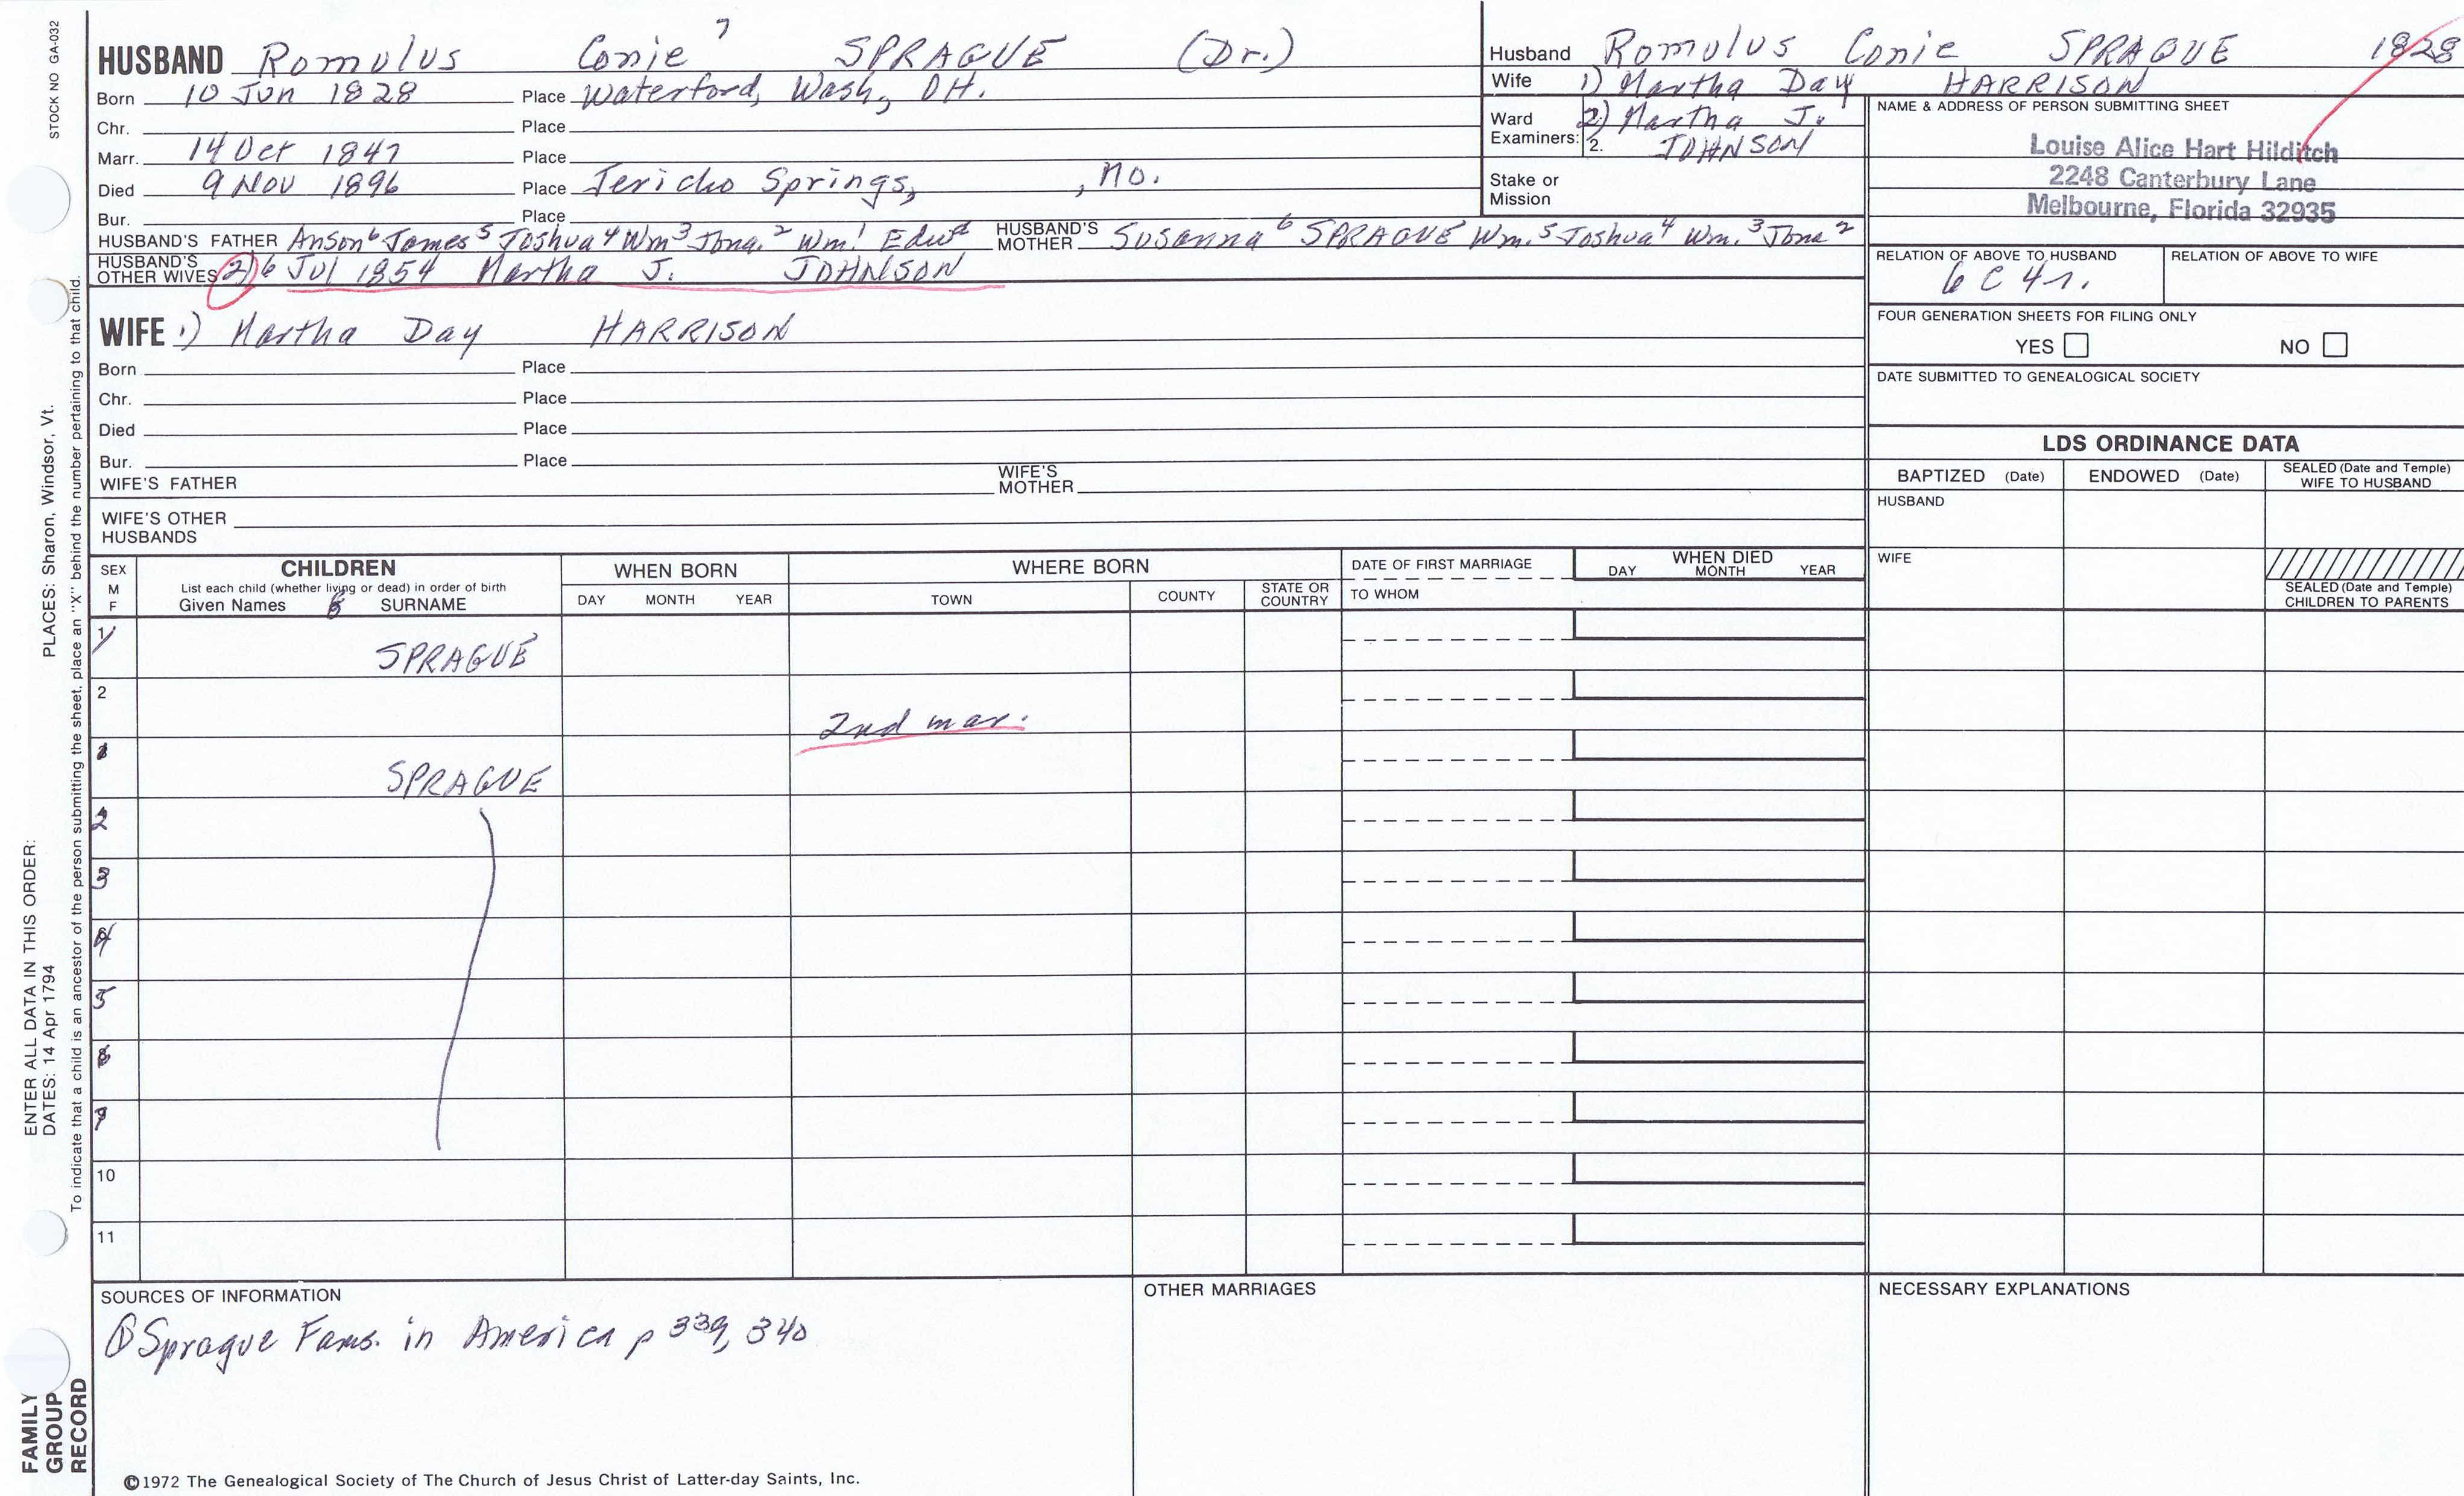 STOCK NO GA-032
HUSBAND Romulus Conie 7 SPRAGUE (Dr.)
Born 10 Jun 1828 Place Waterford, Wash, OH.
Chr. Place
Marr. 14 Oct 1847 Place
Died 9 Nov 1896 Place Jericho Springs, , Mo.
Bur. Place
HUSBAND'S FATHER Anson6 James5 Joshua4 Wm3 Jona.2 Wm1 Edwd HUSBAND'S MOTHER Susanna6 SPRAGUE Wm.5 Joshua4 Wm.3 Jona2
HUSBAND'S OTHER WIVES 2) 6 Jul 1854 Martha J. JOHNSON
WIFE 1) Martha Day HARRISON
Born Place
Chr. Place
Died Place
Bur. Place
WIFE'S FATHER WIFE'S MOTHER
WIFE'S OTHER HUSBANDS
Husband Romulus Conie SPRAGUE 1828
Wife 1) Martha Day HARRISON
Ward 2) Martha J.
Examiners: 2. JOHNSON
Stake or Mission
NAME & ADDRESS OF PERSON SUBMITTING SHEET
Louise Alice Hart Hilditch
2248 Canterbury Lane
Melbourne, Florida 32935
RELATION OF ABOVE TO HUSBAND RELATION OF ABOVE TO WIFE
6 C 4 r.
FOUR GENERATION SHEETS FOR FILING ONLY
YES NO
DATE SUBMITTED TO GENEALOGICAL SOCIETY
LDS ORDINANCE DATA
BAPTIZED (Date) ENDOWED (Date) SEALED (Date and Temple) WIFE TO HUSBAND
HUSBAND
WIFE
SEALED (Date and Temple) CHILDREN TO PARENTS
SEX M F
CHILDREN
List each child (whether living or dead) in order of birth
Given Names SURNAME
WHEN BORN
DAY MONTH YEAR
WHERE BORN
TOWN COUNTY STATE OR COUNTRY
DATE OF FIRST MARRIAGE
TO WHOM
WHEN DIED
DAY MONTH YEAR
1 SPRAGUE
2 2nd mar.
1 SPRAGUE
2
3
4
5
6
7
10
11
SOURCES OF INFORMATION
① Sprague Fams. in America p 339, 340
OTHER MARRIAGES
NECESSARY EXPLANATIONS
©1972 The Genealogical Society of The Church of Jesus Christ of Latter-day Saints, Inc.
ENTER ALL DATA IN THIS ORDER:
DATES: 14 Apr 1794 PLACES: Sharon, Windsor, Vt.
To indicate that a child is an ancestor of the person submitting the sheet, place an "X" behind the number pertaining to that child.
FAMILY
GROUP
RECORD